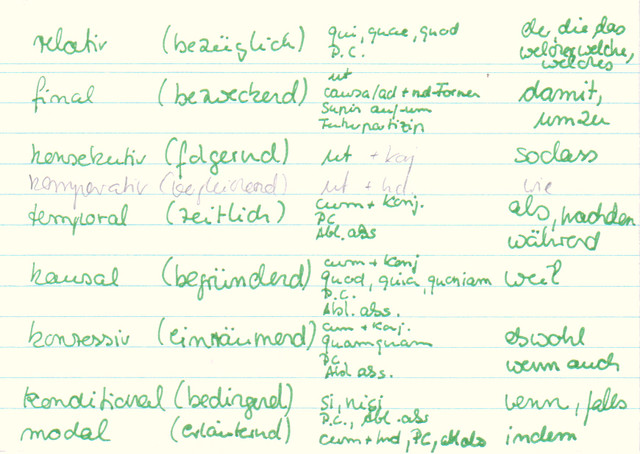 relativ (bezüglich) qui, quae, quod der, die, das
P.C. welcher, welche, welches
final (bezweckend) ut damit,
causa/ad + nd-Formen um zu
Supin auf -um
Futurpartizip
konsekutiv (folgernd) ut + Konj sodass
komparativ (vergleichend) ut + Ind wie
temporal (zeitlich) cum + Konj. als, nachdem
PC während
Abl. abs
kausal (begründend) cum + Konj weil
quod, quia, quoniam
P.C.
Abl. abs.
konzessiv (einräumend) cum + Konj. obwohl
quamquam wenn auch
PC
Abl abs.
konditional (bedingend) si, nisi wenn, falls
P.C., Abl. abs
modal (erläuternd) cum + Ind, PC, abl abs indem